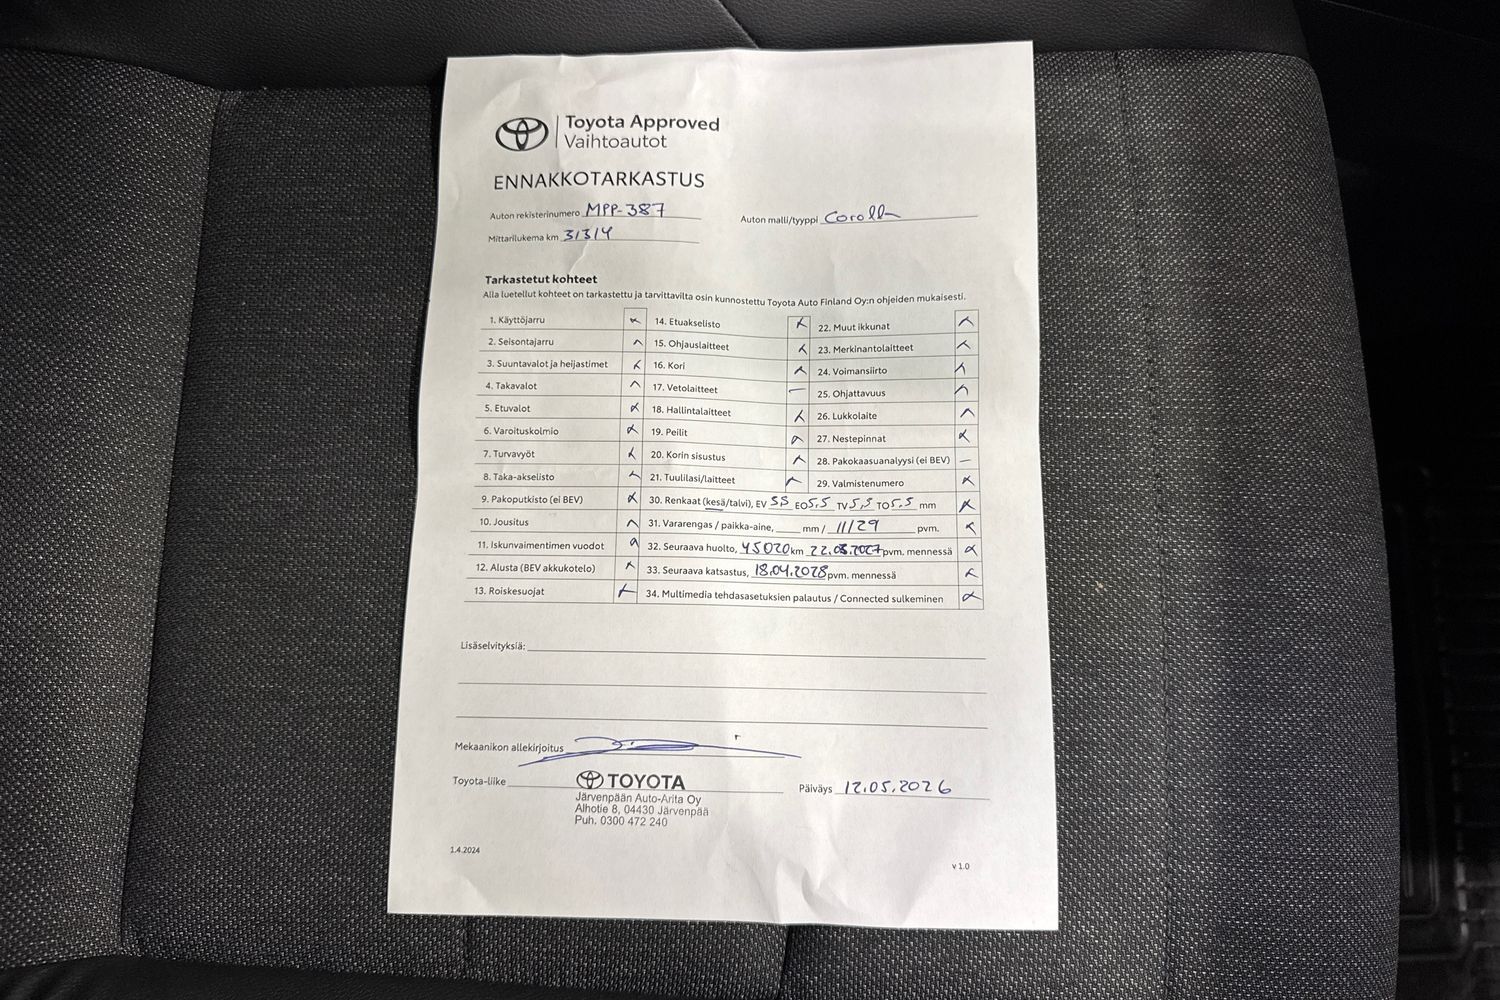 Toyota Approved
Vaihtoautot
ENNAKKOTARKASTUS
Auton rekisterinumero MPP-387 Auton malli/tyyppi Corolla
Mittarilukema km 31314
Tarkastetut kohteet
Alla luetellut kohteet on tarkastettu ja tarvittavilta osin kunnostettu Toyota Auto Finland Oy:n ohjeiden mukaisesti.
1. Käyttöjarru
2. Seisontajarru
3. Suuntavalot ja heijastimet
4. Takavalot
5. Etuvalot
6. Varoituskolmio
7. Turvavyöt
8. Taka-akselisto
9. Pakoputkisto (ei BEV)
10. Jousitus
11. Iskunvaimentimen vuodot
12. Alusta (BEV akkukotelo)
13. Roiskesuojat
14. Etuakselisto
15. Ohjauslaitteet
16. Kori
17. Vetolaitteet —
18. Hallintalaitteet
19. Peilit
20. Korin sisustus
21. Tuulilasi/laitteet
22. Muut ikkunat
23. Merkinantolaitteet
24. Voimansiirto
25. Ohjattavuus
26. Lukkolaite
27. Nestepinnat
28. Pakokaasuanalyysi (ei BEV) —
29. Valmistenumero
30. Renkaat (kesä/talvi), EV 5.5 EO 5.5 TV 5,5 TO 5.5 mm
31. Vararengas / paikka-aine, mm / 11/29 pvm.
32. Seuraava huolto, 45020 km 22.08.2027 pvm. mennessä
33. Seuraava katsastus, 18.04.2028 pvm. mennessä
34. Multimedia tehdasasetuksien palautus / Connected sulkeminen
Lisäselvityksiä:
Mekaanikon allekirjoitus
Toyota-liike TOYOTA Päiväys 12.05.2026
Järvenpään Auto-Arita Oy
Alhotie 8, 04430 Järvenpää
Puh. 0300 472 240
1.4.2024
v 1.0